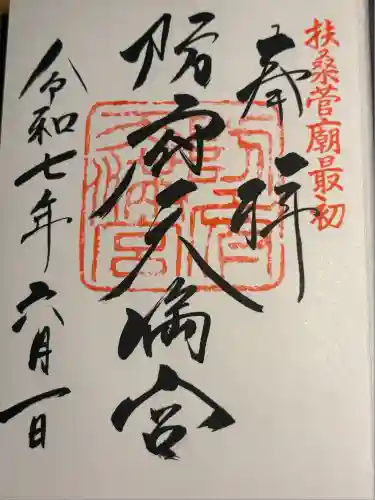 扶桑菅廟最初
奉拝
防府天満宮
令和七年六月一日